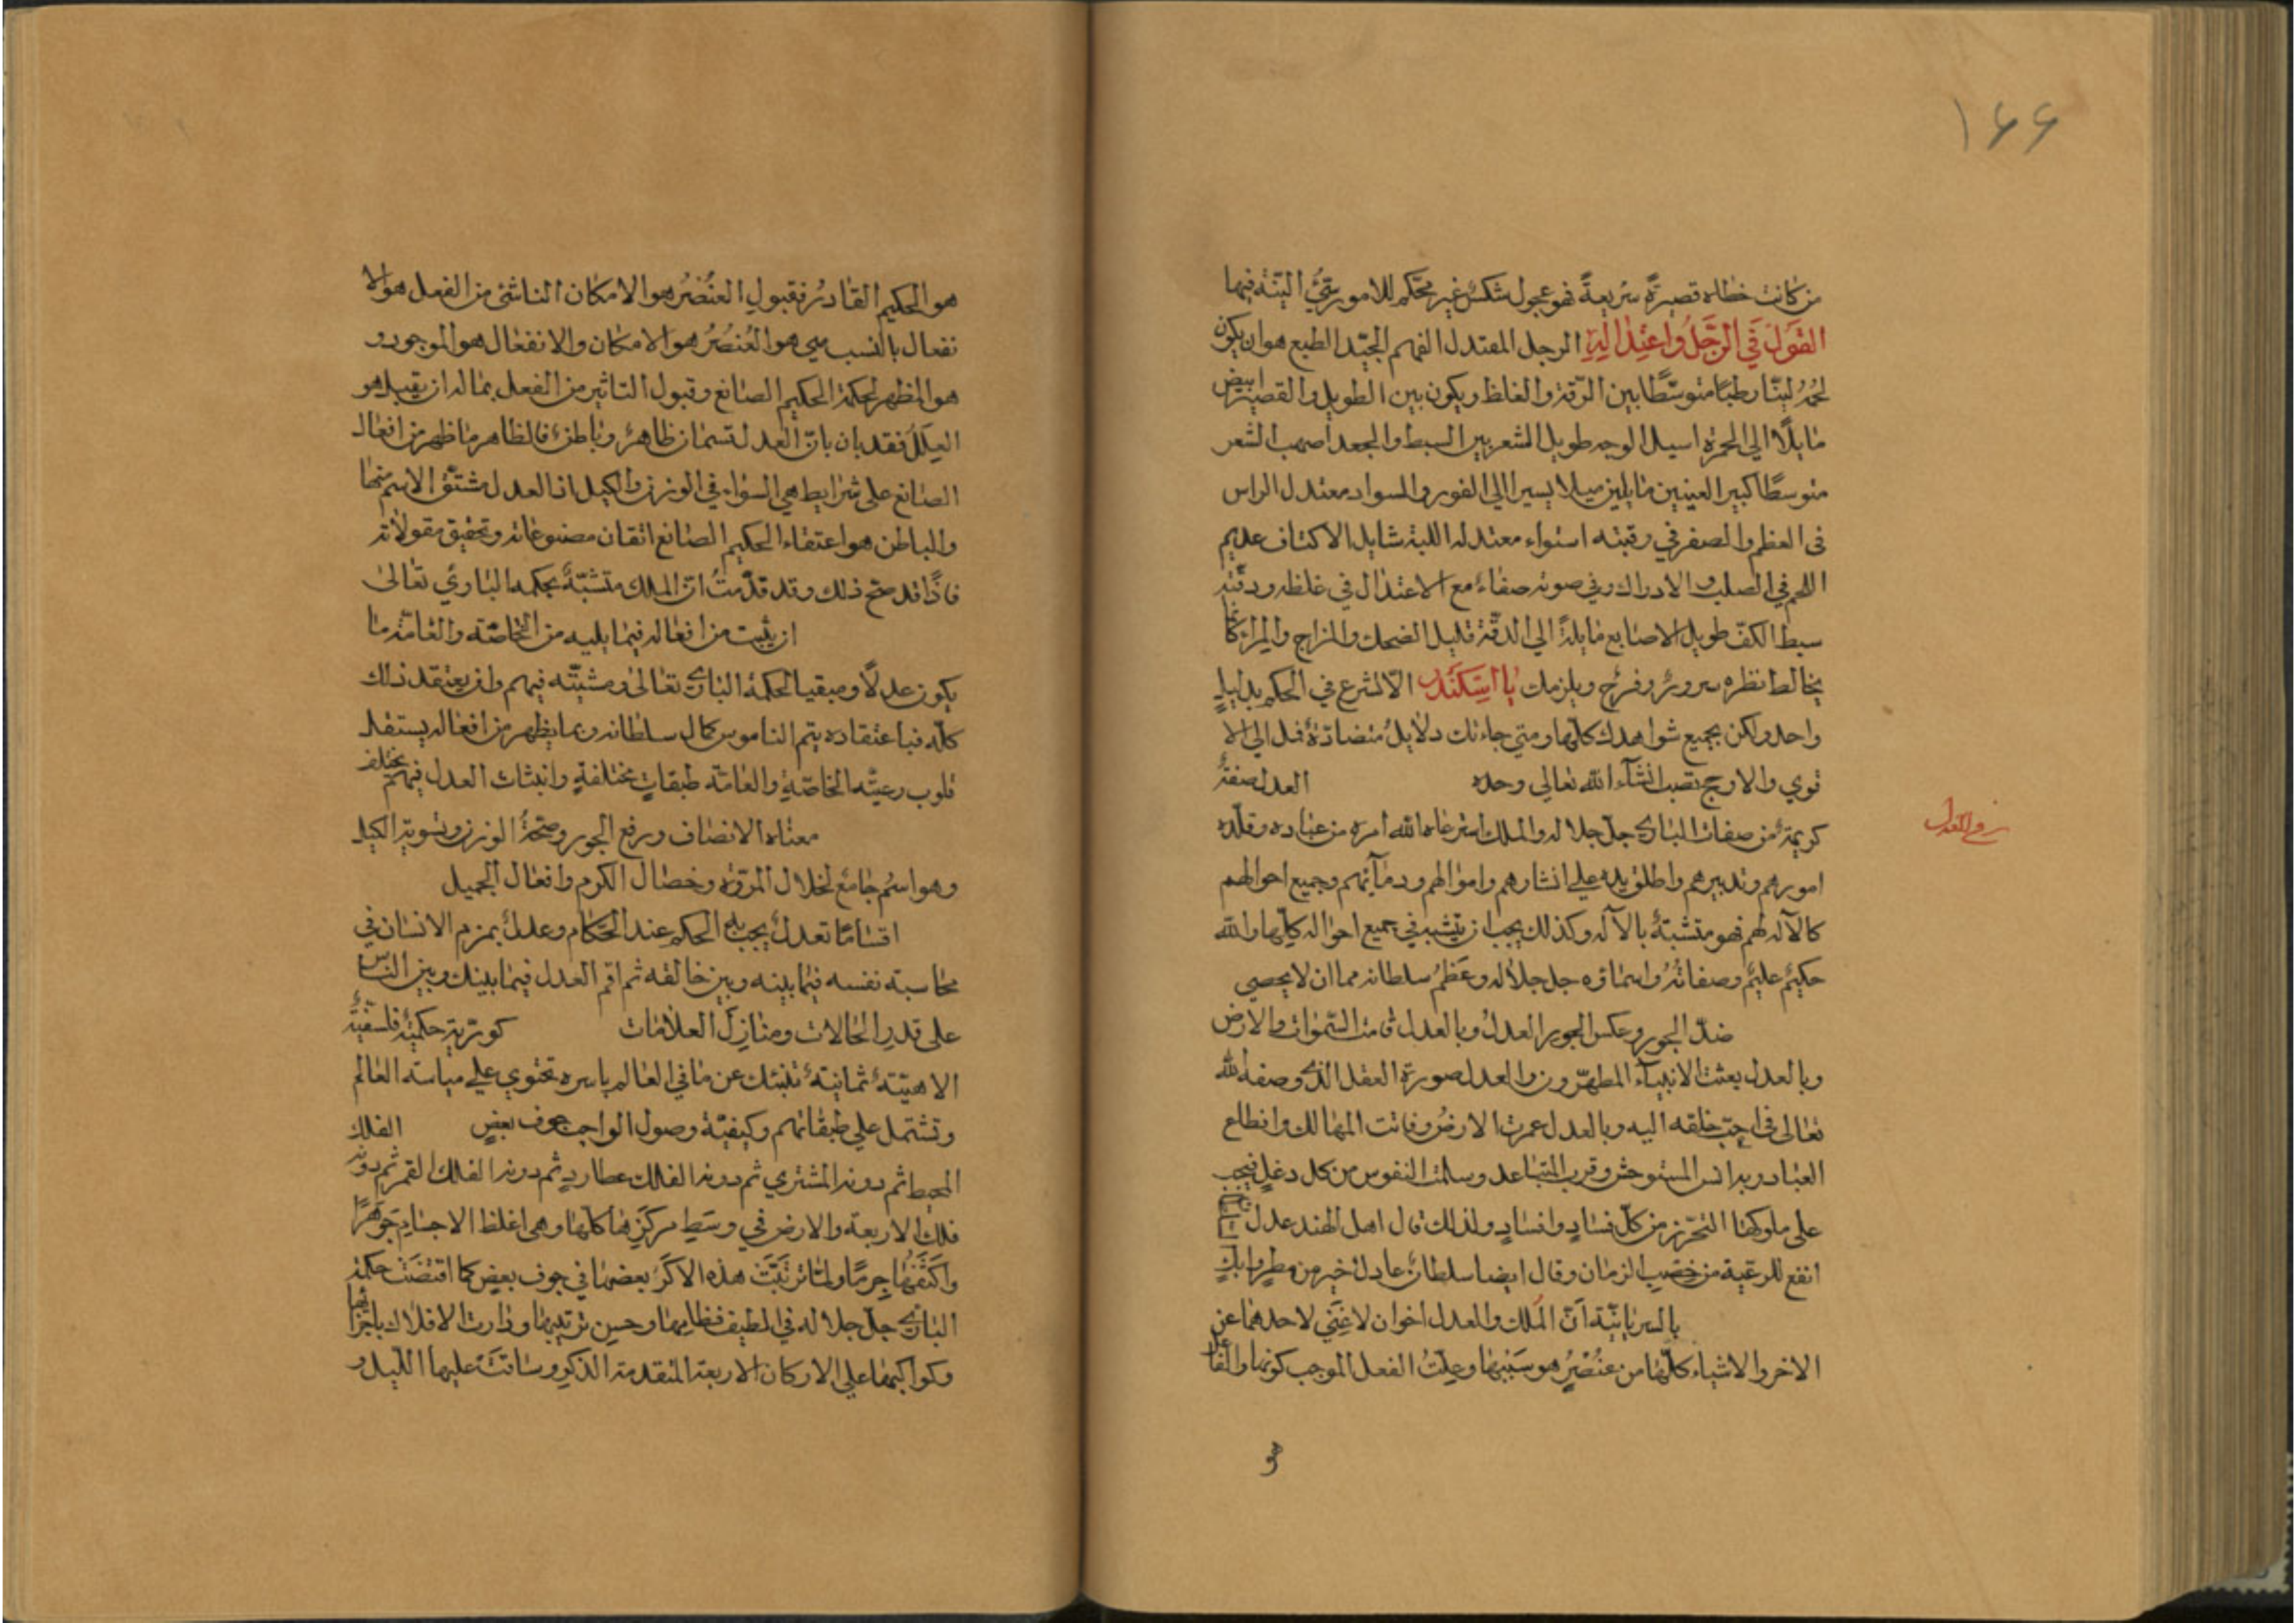 ١٦٦
من كانت خطاه قصيرة سريعة فهو عجول شكس غير محكم للامور سيّئ النيّة فيها
القول في الرجل واعتداله الرجل المعتدل الفهم الجيّد الطبع هو ان يكون
لحمه ليّنا رطبا متوسّطا بين الرّقة والغلظ ويكون بين الطويل والقصير ابيض
مايلا الي الحمرة اسيل الوجه طويل الشعر بين السبط والجعد اصهب الشعر
متوسطا كبير العينين مايلين ميلا يسيرا الي الغور والسواد معتدل الراس
في العظم والصغر في رقبته استواء معتدله اللبة شايل الاكتاف عديم
اللحم في الصلب والاوراك وفي صوته صفاء مع الاعتدال في غلظه ودقّته
سبط الكفّ طويل الاصابع مايلة الي الدقّة قليل الضحك والمزاح والمراء كانما
يخالط نظره سرور وفرح ويلزمك يا اسكندر الّا تسرع في الحكم بدليل
واحد ولكن بجميع شواهدك كلّها ومتي جاءتك دلايل متضادّة فمل الي الا
قوي والارجح تصب انشآء الله تعالي وحده العدل صفة
كريمة من صفات الباري جلّ جلاله والملك استرعاه الله امره من عباده وقلّده
امورهم وتدبيرهم واطلق يده علي ابشارهم واموالهم ودمآئهم وجميع احوالهم
كالآله لهم فهو متشبّه بالآله وكذلك يجب ان يتشبه في جميع احواله كلّها والله
حكيم عليم وصفاته واسماؤه جل جلاله وعظم سلطانه مما ان لا يحصي
ضدّ الجور وعكس الجور العدل وبالعدل قامت السّموات والارض
وبالعدل بعثت الانبيآء المطهّرون والعدل صورة العقل الذي وصفه الله
تعالي في احبّ خلقه اليه وبالعدل عمرت الارض وفاتت المهالك وانطاع
العباد وبه انس المستوحش وقرب المتباعد وسلمت النفوس من كل دغل فيجب
علي ملوكها التحرّز من كلّ فساد وافساد ولذلك قال اهل الهند عدل
انفع للرعية من خصب الزمان وقال ايضا سلطان عادل خير من مطر وابل
بالسريانيّة انّ الملك والعدل اخوان لا غني لاحدهما عن
الاخر والاشياء كلّها من عنصر هو سببها وعلّت الفعل الموجب كونها والفاعل
هو
هو الحكيم القادر فقبول العنصر هو الامكان الناشئ من الفعل هو الا
نفعال بالنسب هو العنصر هو الامكان والانفعال هو الموجود و
هو المظهر لحكمة الحكيم الصانع وقبول التاثير من الفعل بماله ان يقبل هو
العلل فقد بان بانّ العدل قسمان ظاهر وباطن فالظاهر ما ظهر من افعال
الصانع علي شرايط هي السواء في الوزن والكيل اذ العدل مشتقّ الاسم منها
والباطن هو اعتقاد الحكيم الصانع اتقان مصنوعاته وتحقيق مقولاته
فاذا قد صحّ ذلك وقد قدّمت انّ الملك متشبّه بحكمه الباري تعالي
ان يثبت من افعاله فيما يليه من الخاصّة والعامّة ما
يكون عدلا ومبقيا لحكمة الباري تعالي ومشيّته فيهم وان يعتمد ذلك
كلّه فباعتقاده يتم الناموس كمال سلطانه وبما يظهر من افعاله يستقل
قلوب رعيّته الخاصّة والعامّة طبقات مختلفة وانبثاث العدل فيهم مختلف
معناه الانصاف ورفع الجور وصحّة الوزن وتسوية الكيل
وهو اسم جامع لخلال المروّة وخصال الكرم وافعال الجميل
اقساما تعدل يجب به الحكم عند الحكّام وعدل يمزم الانسان في
محاسبة نفسه فيما بينه وبين خالقه ثم اقم العدل فيما بينك وبين الناس
علي قدر الحالات ومنازل العلامات كوريّة حكميّة فلسفيّة
الاهيّة ثمانية تنبئك عن ما في العالم باسره تحتوي علي سياسة العالم
وتشتمل علي طبقاتهم وكيفيّة وصول الواجب جوف بعض الفلك
المحيط ثم دونه المشتري ثم دونه الفلك عطارد ثم دونه الفلك القمر ثم دونه
فلك الاربعة والارض في وسط مركزها كلّها وهي اغلظ الاجسام جوهرا
واكثفها جرما ولمّا ترتّبت هذه الاكر بعضها في جوف بعض كما اقتضت حكمة
الباري جلّ جلاله في لطيف نظامها وحسن ترتيبها ودارت الافلاك باجزائها
وكواكبها علي الاركان الاربعة المتقدمة الذكر وساقت عليها الليل و